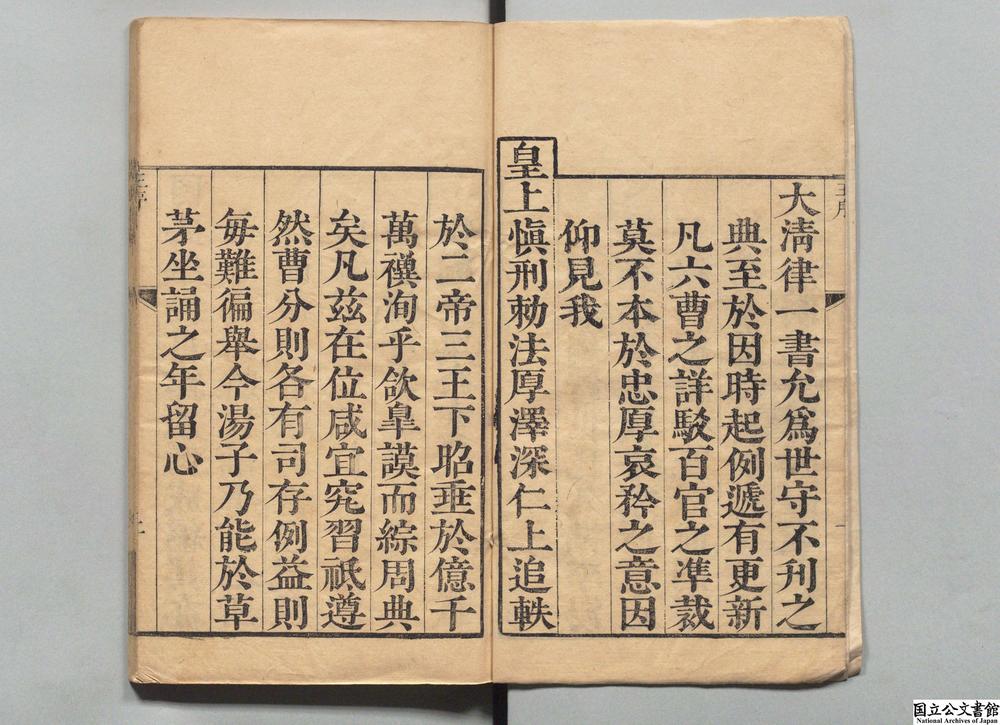 大清律一書允爲世守不刋之
典至於因時起例遞有更新
凡六曹之詳駁百官之凖裁
莫不本於忠厚哀矜之意因
仰見我
皇上愼刑勅法厚澤深仁上追軼
於二帝三王下昭垂於億千
萬禩洵乎歛臯謨而綜周典
矣凡茲在位咸宜究習祇遵
然曹分則各有司存例益則
每難徧舉今湯子乃能於草
茅坐誦之年留心
国立公文書館
National Archives of Japan